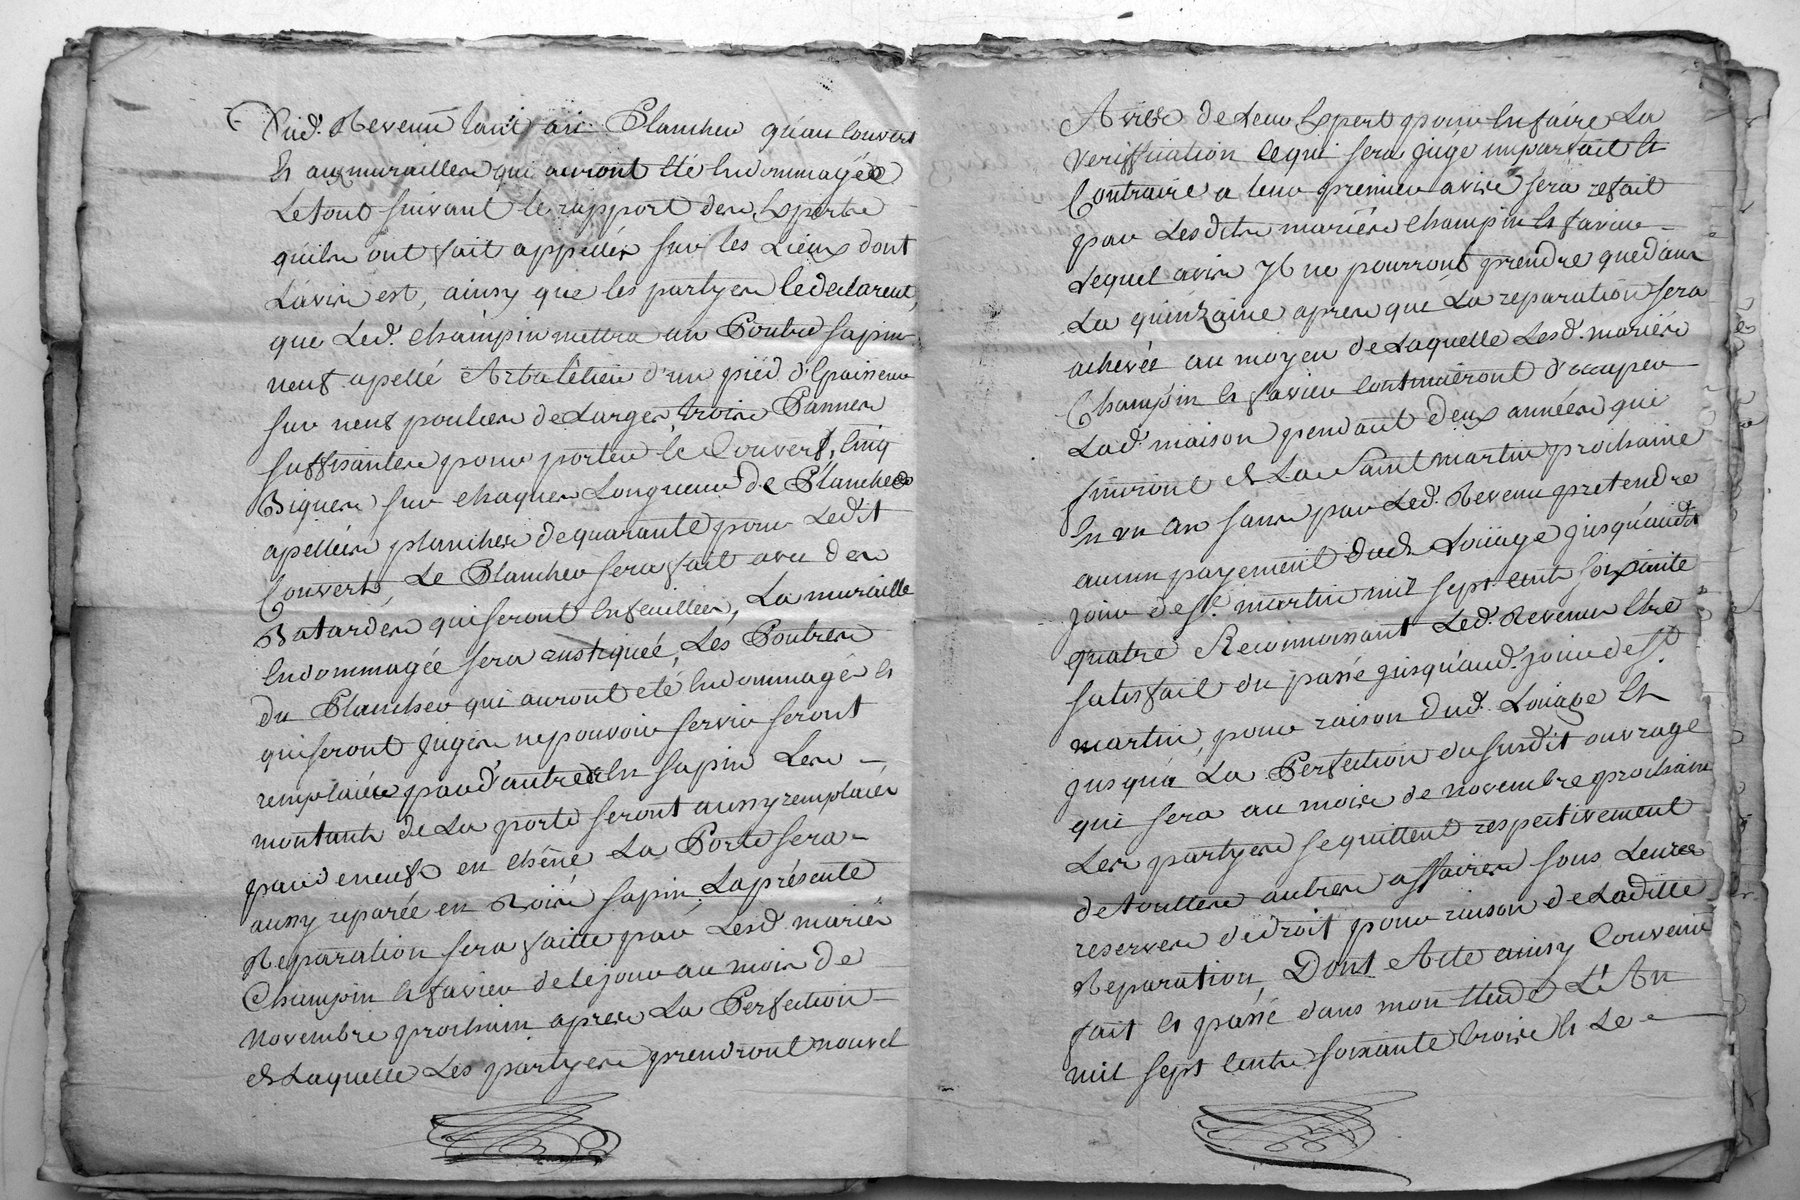 Sud. Revenu tant au Plancher qu'au Couvert
Et aux murailles qui auront Eté Endommagées
Le tout suivant le rapport des Experts
quils ont fait appeller sur les Lieux dont
L'avis est, ainsy que les partyes le declarent,
que Led. Champin mettra un Poutre sapin
neuf apellé Arbalêtier d'un pied d'Epaisseur
sur neuf pouces de Larges trois Pannes
suffisantes pour porter le Couvert, Cinq
Bigues sur chaques Longueur de Planches
apellées planches de quarante pour Ledit
Couvert, Le Plancher sera fait avec des
Batardes qui seront Enfeuillées, La muraille
Endommagée sera rustiquée, Les Poutres
du Plancher qui auront eté Endommagés Et
qui seront Jugés ne pouvoir servir seront
remplacés par d'autres En sapin Les
montants de La porte seront aussy remplacés
par de neufs en chêne La Porte sera
aussy reparée en Bois sapin, La présente
Reparation sera faitte par Lesd. mariés
Champin Et favier de ce jour au mois de
Novembre prochain apres La Perfection
de Laquelle Les partyes prendront nouvel
Avis de Leur Expert pour En faire La
Veriffication Ce qui sera Jugé imparfait Et
Contraire a leur premier avis sera refait
par Lesdits mariés Champin Et favier
Lequel avis Ils ne pourront prendre que dans
La quinzaine apres que La reparation sera
achevée au moyen de Laquelle Lesd. mariés
Champin Et favier Continueront d'occuper
Lad. maison pendant deux années qui
finiront à La Saint martin prochaine
En un An sans que Led. Revenu pretendre
aucun payement dud. Loüage jusqu'audit
jour de St. martin mil sept Cent soixante
quatre Reconnoissant Led. Revenu Etre
satisfait du passé jusqu'aud. jour de St.
martin, pour raison dud. Loüage Et
jusqu'a La Perfection du susdit ouvrage
qui sera au mois de novembre prochain
Les partyes se quittent respectivement
de touttes autres affaires sous Leurs
reserves de droit pour raison de Laditte
Reparation, Dont Acte ainsy Convenu
fait Et passé dans mon Etude L'An
mil sept Cents soixante trois Et Le